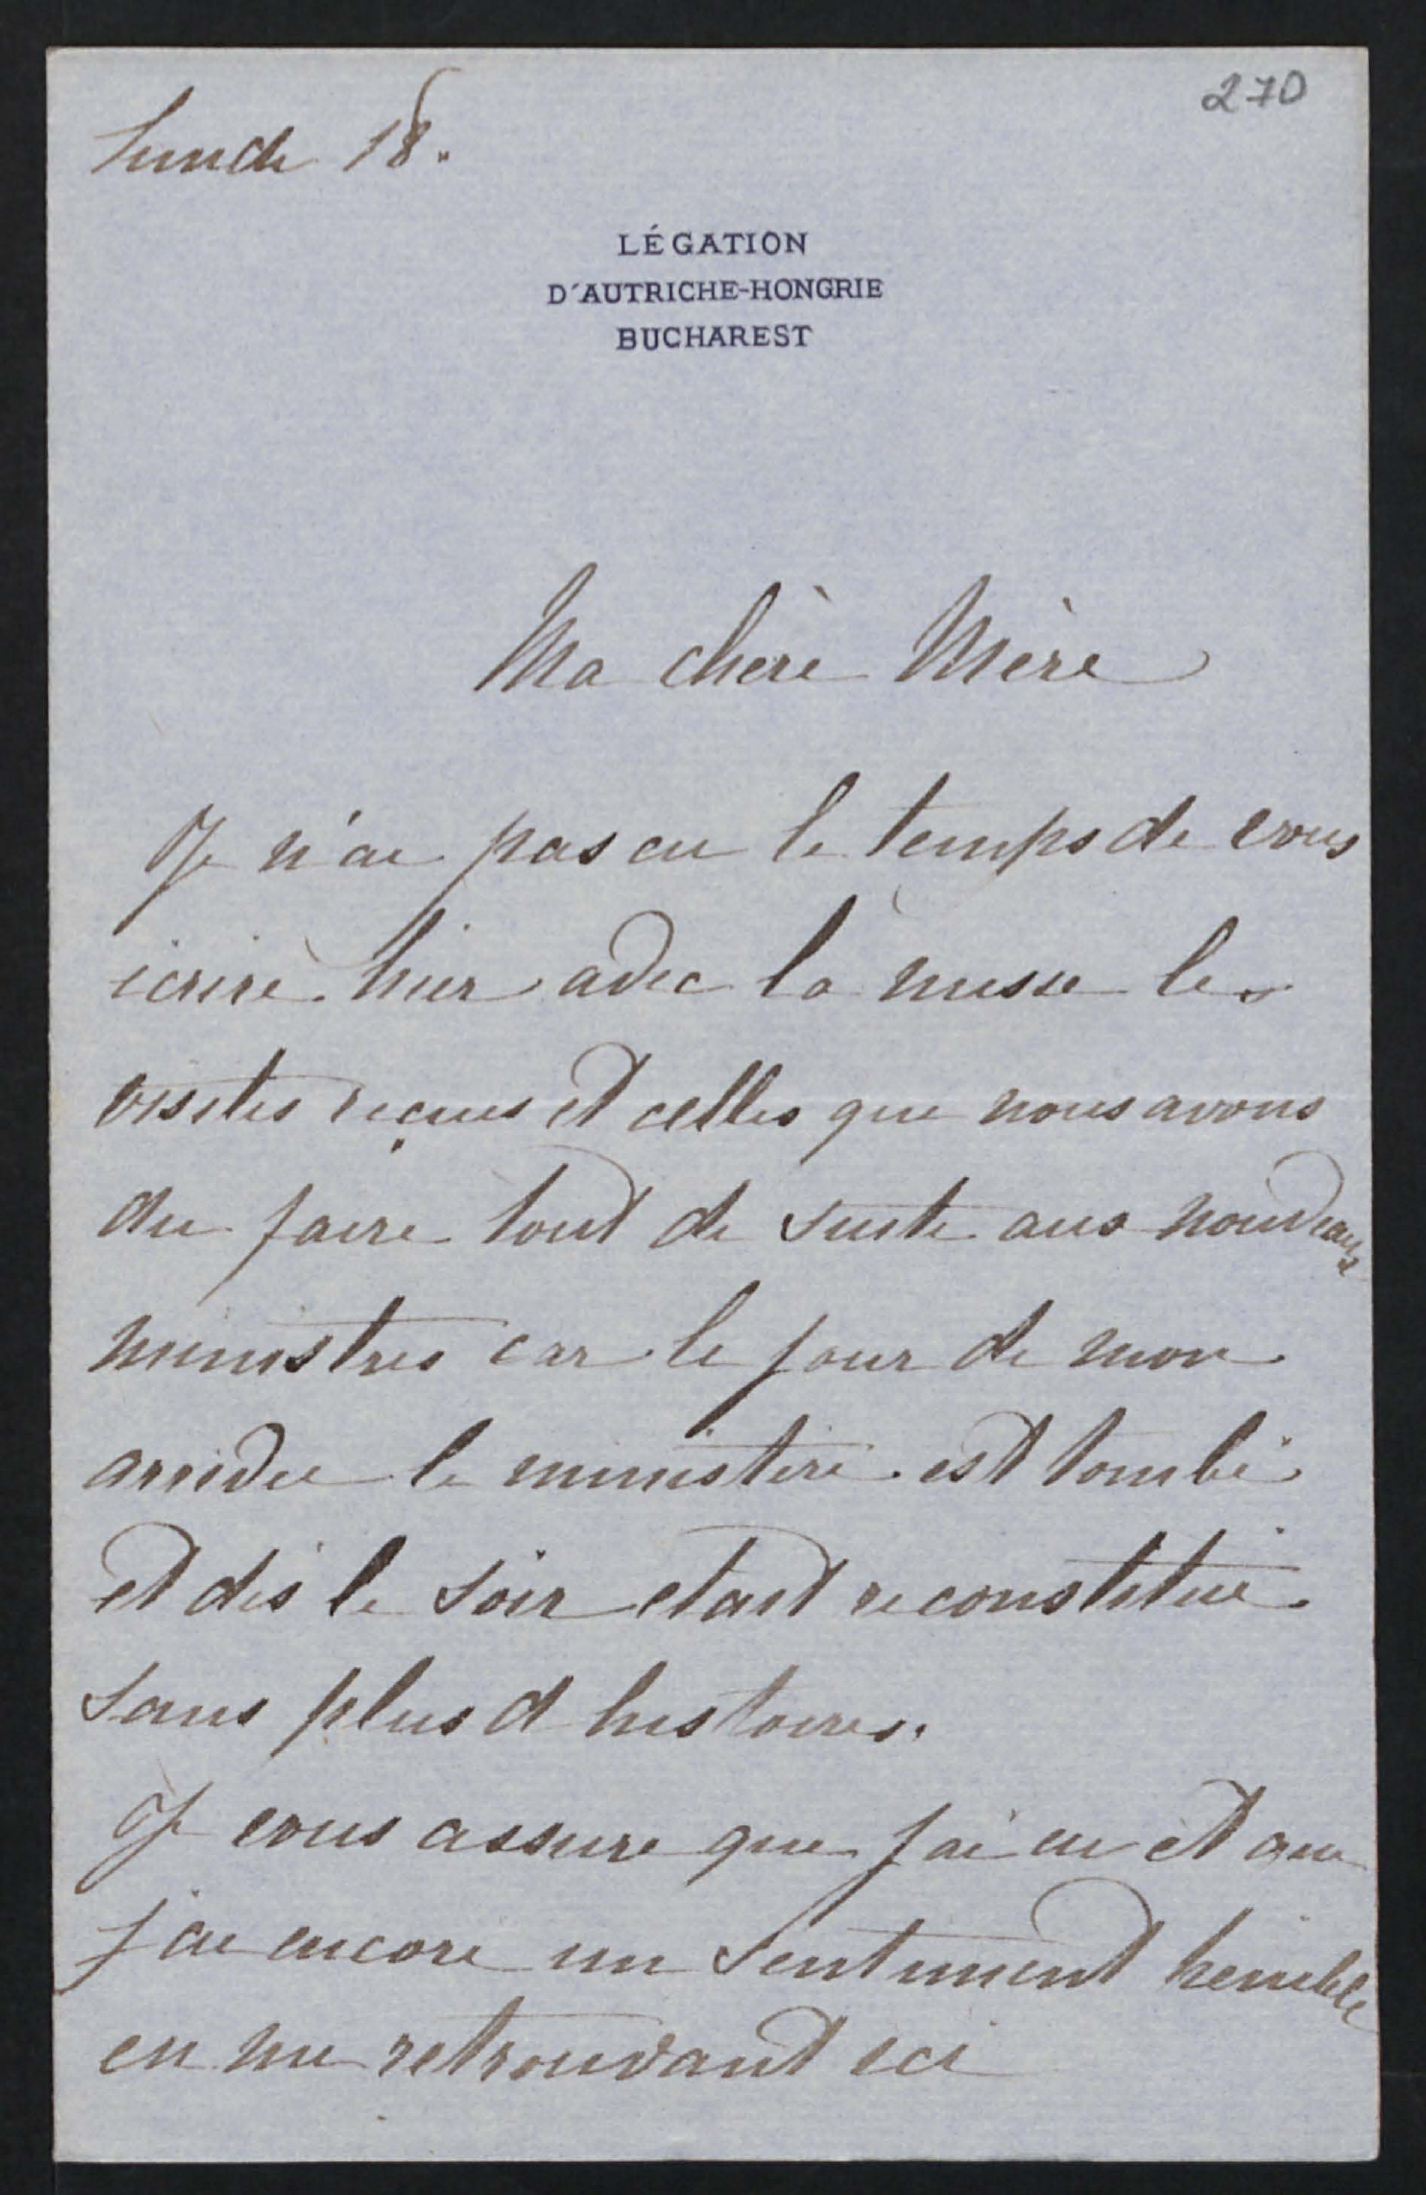 270
Lundi 18.
LÉGATION
D'AUTRICHE-HONGRIE
BUCHAREST
Ma chère Mère
Je n'ai pas eu le temps de vous
écrire hier avec la messe les
visites reçues et celles que nous avons
du faire tout de suite aux nouveaux
ministres car le jour de mon
arrivée le ministère est tombé
et dès le soir etait reconstitué
sans plus d'histoires.
Je vous assure que j'ai eu et que
j'ai encore un sentiment penible
en me retrouvant ici